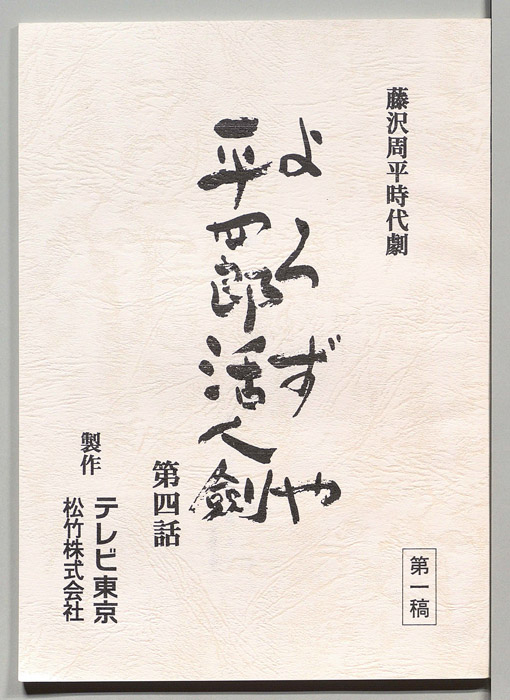 藤沢周平時代劇
よろずや
平四郎活人剣
第四話
製作
テレビ東京
松竹株式会社
第一稿